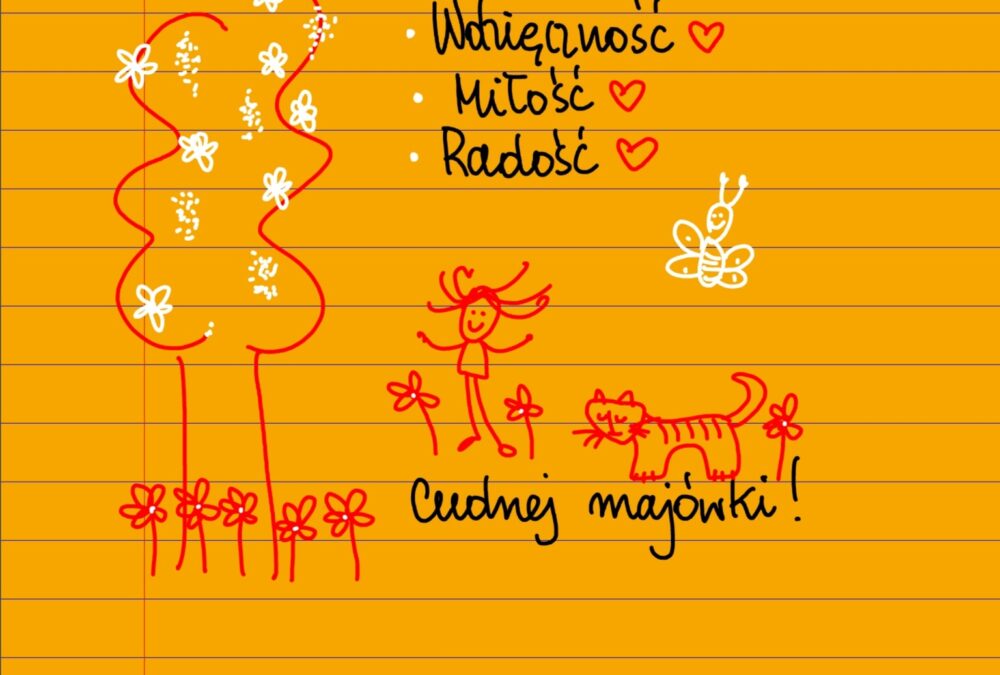 • Wdzięczność
• Miłość
• Radość
Cudnej majówki!